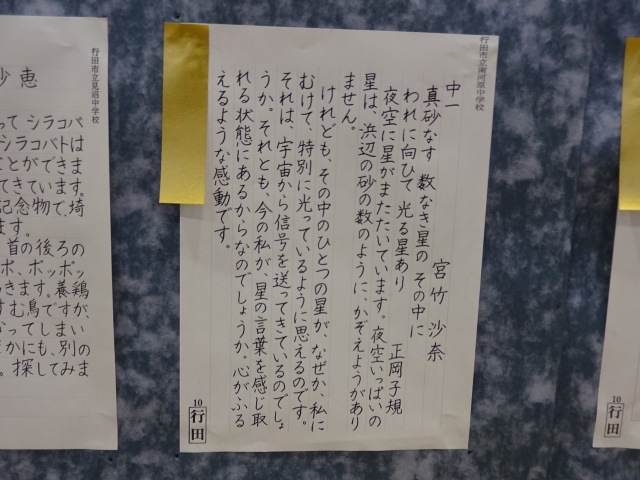 行田市立南河原中学校
中一
宮竹沙奈
真砂なす 数なき星の その中に
われに向ひて 光る星あり
正岡子規
夜空に星がまたたいています。夜空いっぱいの
星は、浜辺の砂の数のように、かぞえようがあり
ません。
けれども、その中のひとつの星が、なぜか、私に
むけて、特別に光っているように思えるのです。
それは、宇宙から信号を送ってきているのでしょ
うか。それとも、今の私が、星の言葉を感じ取
れる状態にあるからなのでしょうか。心がふる
えるような感動です。
10
行田
行田市立見沼中学校
沙恵
って シラコバ
シラコバトは
ことができま
てきています。
記念物で、埼
ます。
首の後ろの
ポ、ポッポッ
きます。養鶏
すむ鳥ですが、
がってしまい
かにも、別の
。探してみま
10
行田